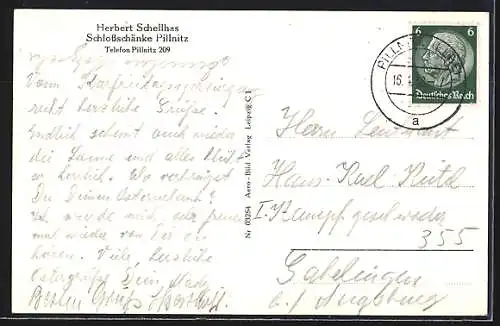 Herbert Schellhas
Schloßschänke Pillnitz
Telefon Pillnitz 209
Vom Karfreitagsspaziergang
recht herzliche Grüße.
Endlich scheint auch wieder
die Sonne und alles blüht
so herrlich. Wo verbringst
Du Deinen Osterurlaub?
Ich würde mich sehr freuen
mal wieder von Dir zu
hören. Viele, herzliche
Ostergrüße Dein
Besten Gruß
Nr 03254 Aero-Bild Verlag Leipzig C 1
PILLNITZ
16.
a
6 6
Deutsches Reich
Herrn Leutnant
Hans-Karl
I. Kampfgeschwader
355
Gablingen
b./ Augsburg